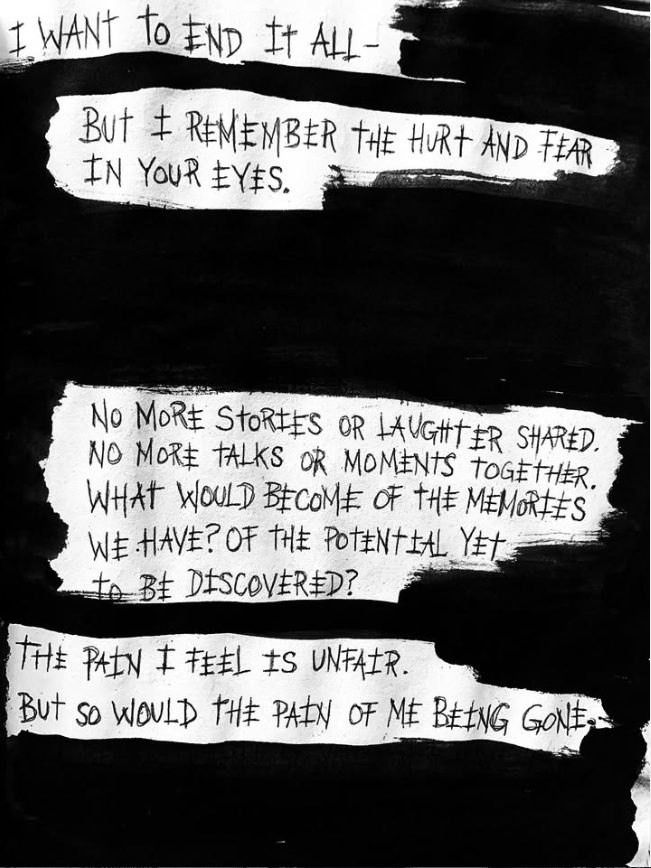 I WANT TO END IT ALL-
BUT I REMEMBER THE HURT AND FEAR
IN YOUR EYES.
NO MORE STORIES OR LAUGHTER SHARED.
NO MORE TALKS OR MOMENTS TOGETHER.
WHAT WOULD BECOME OF THE MEMORIES
WE HAVE? OF THE POTENTIAL YET
TO BE DISCOVERED?
THE PAIN I FEEL IS UNFAIR.
BUT SO WOULD THE PAIN OF ME BEING GONE.